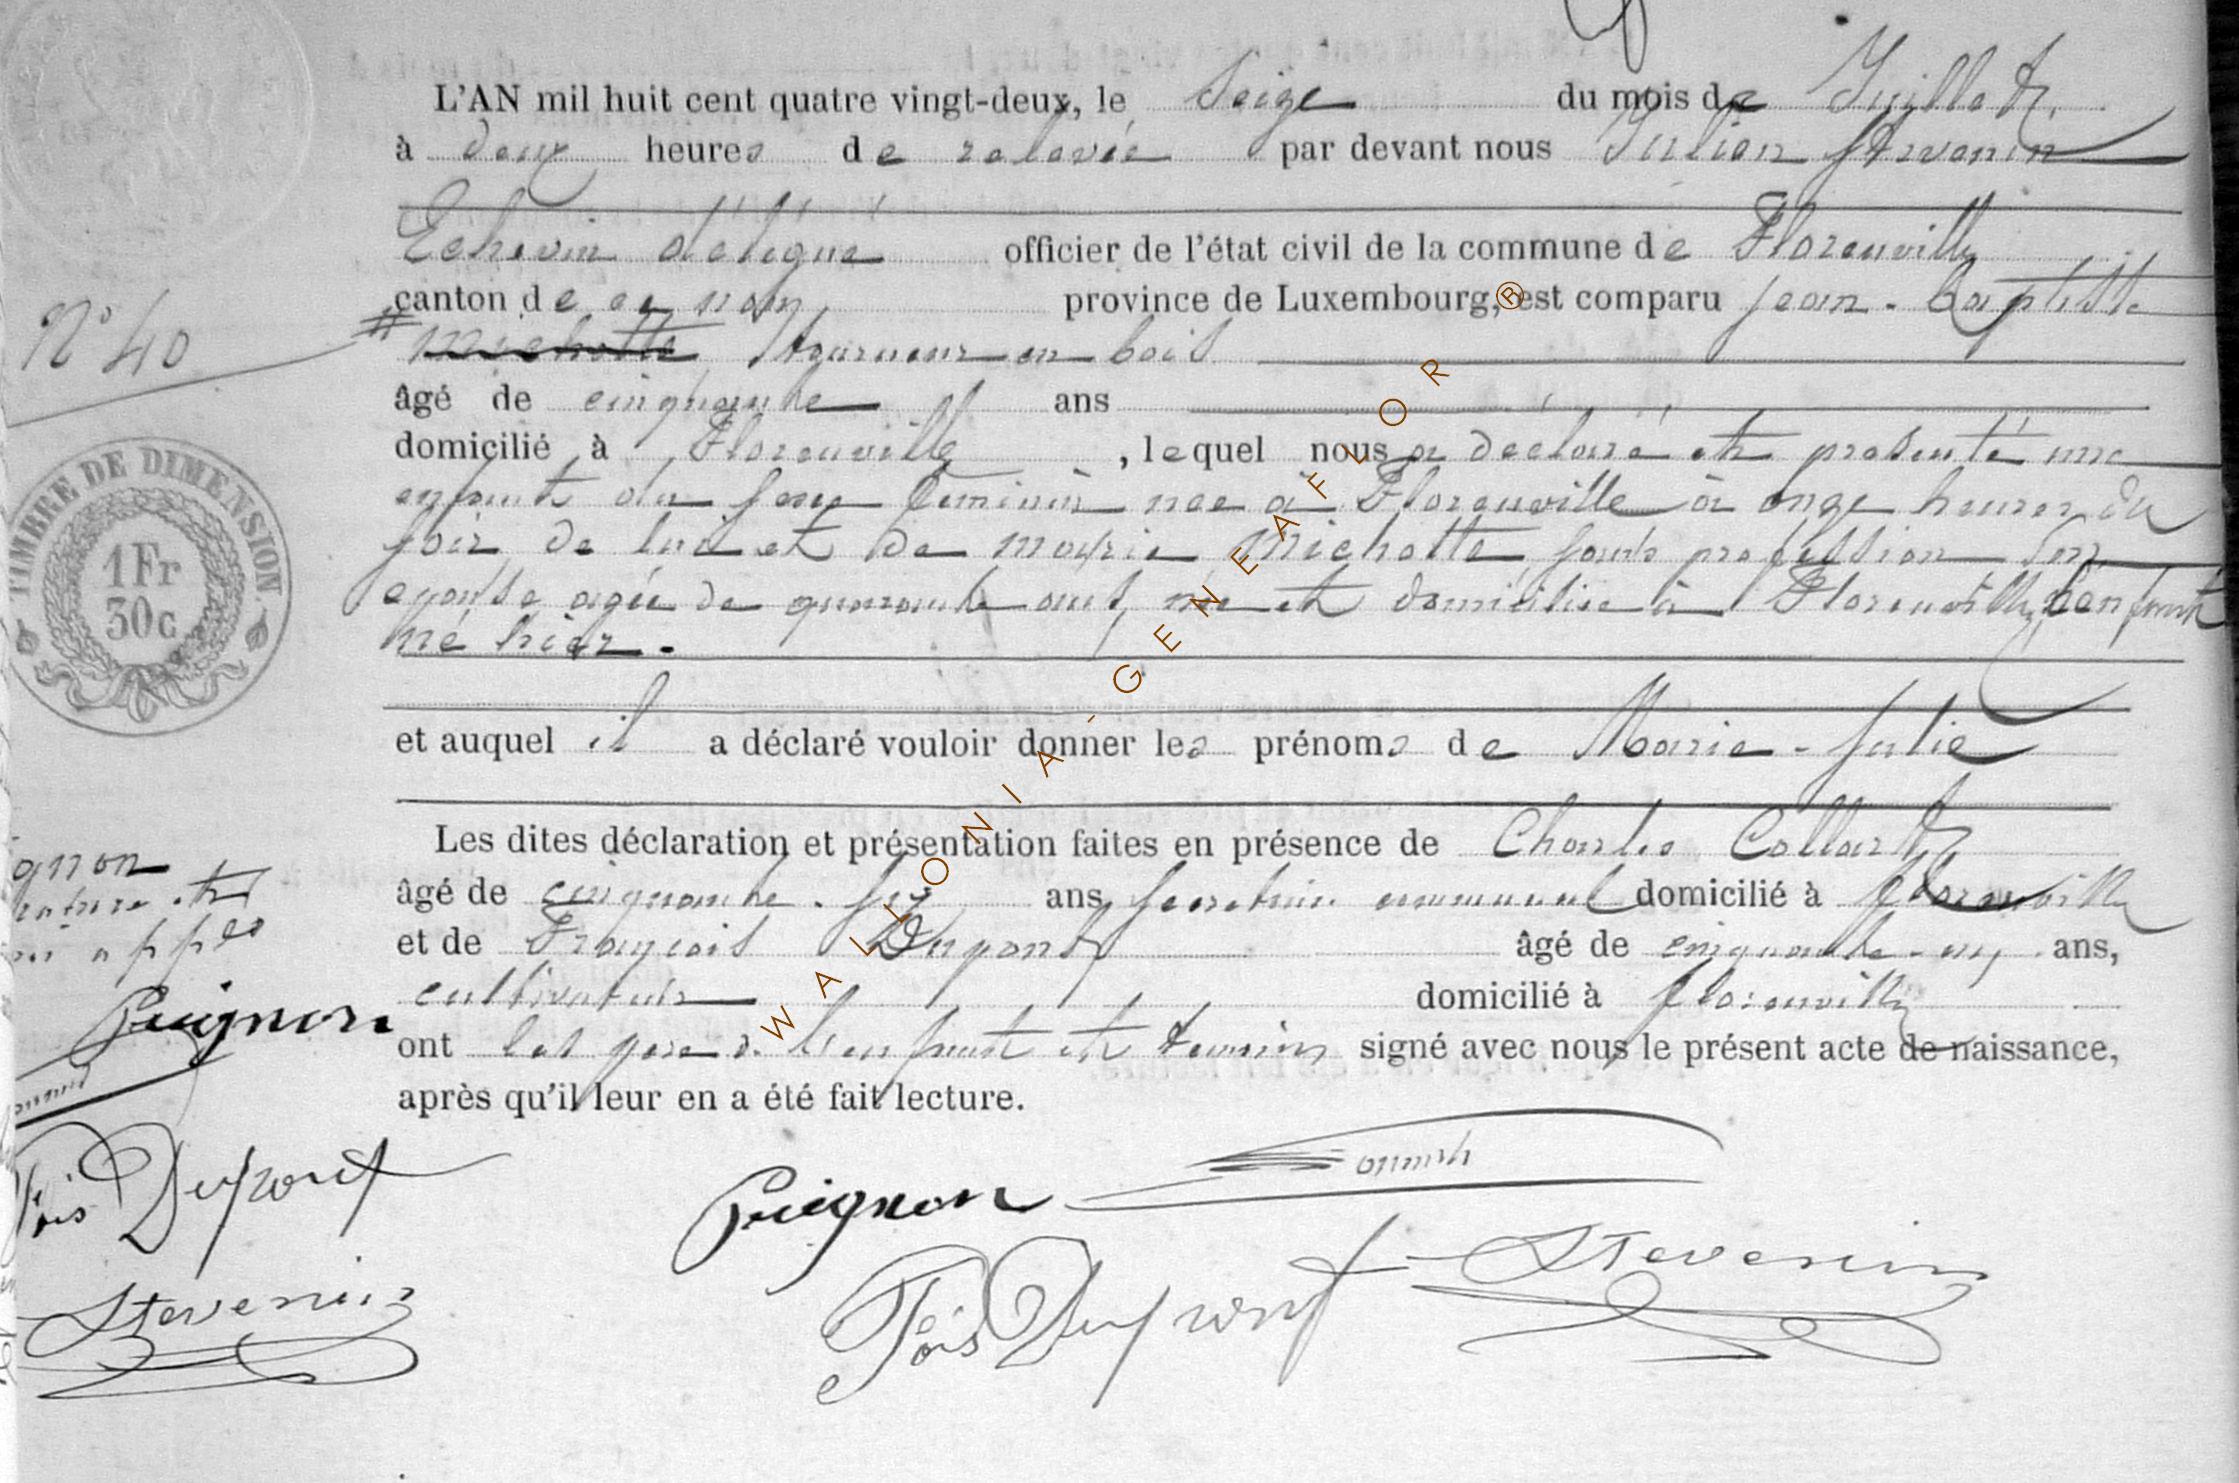 L'AN mil huit cent quatre vingt-deux, le Seize du mois de Juillet,
à deux heures de relevée par devant nous Julien Stevenin
Echevin délégué officier de l'état civil de la commune de Florenville
N° 40
canton de ce nom province de Luxembourg, est comparu Jean-Baptiste
# Michotte tourneur en bois
âgé de cinquante ans
domicilié à Florenville, lequel nous a déclaré et présenté une
enfant du sexe féminin née à Florenville à onze heures du
soir de lui et de Marie Michotte sans profession son
épouse agée de quarante ans, née et domiciliée à Florenville, l'enfant
né hier.
TIMBRE DE DIMENSION.
1Fr
30c
et auquel il a déclaré vouloir donner les prénoms de Marie-Julie
Les dites déclaration et présentation faites en présence de Charles Collard
âgé de cinquante-six ans secrétaire communal domicilié à Florenville
et de François Dupont âgé de cinquante- ans,
cultivateur domicilié à florenville
ont les père de l'enfant et témoins signé avec nous le présent acte de naissance,
après qu'il leur en a été fait lecture.
gnon
Guignon
Fois Dupont
Stevenin
Guignon
Fois Dupont Stevenin
WALLONIA-GENEAFLOR®